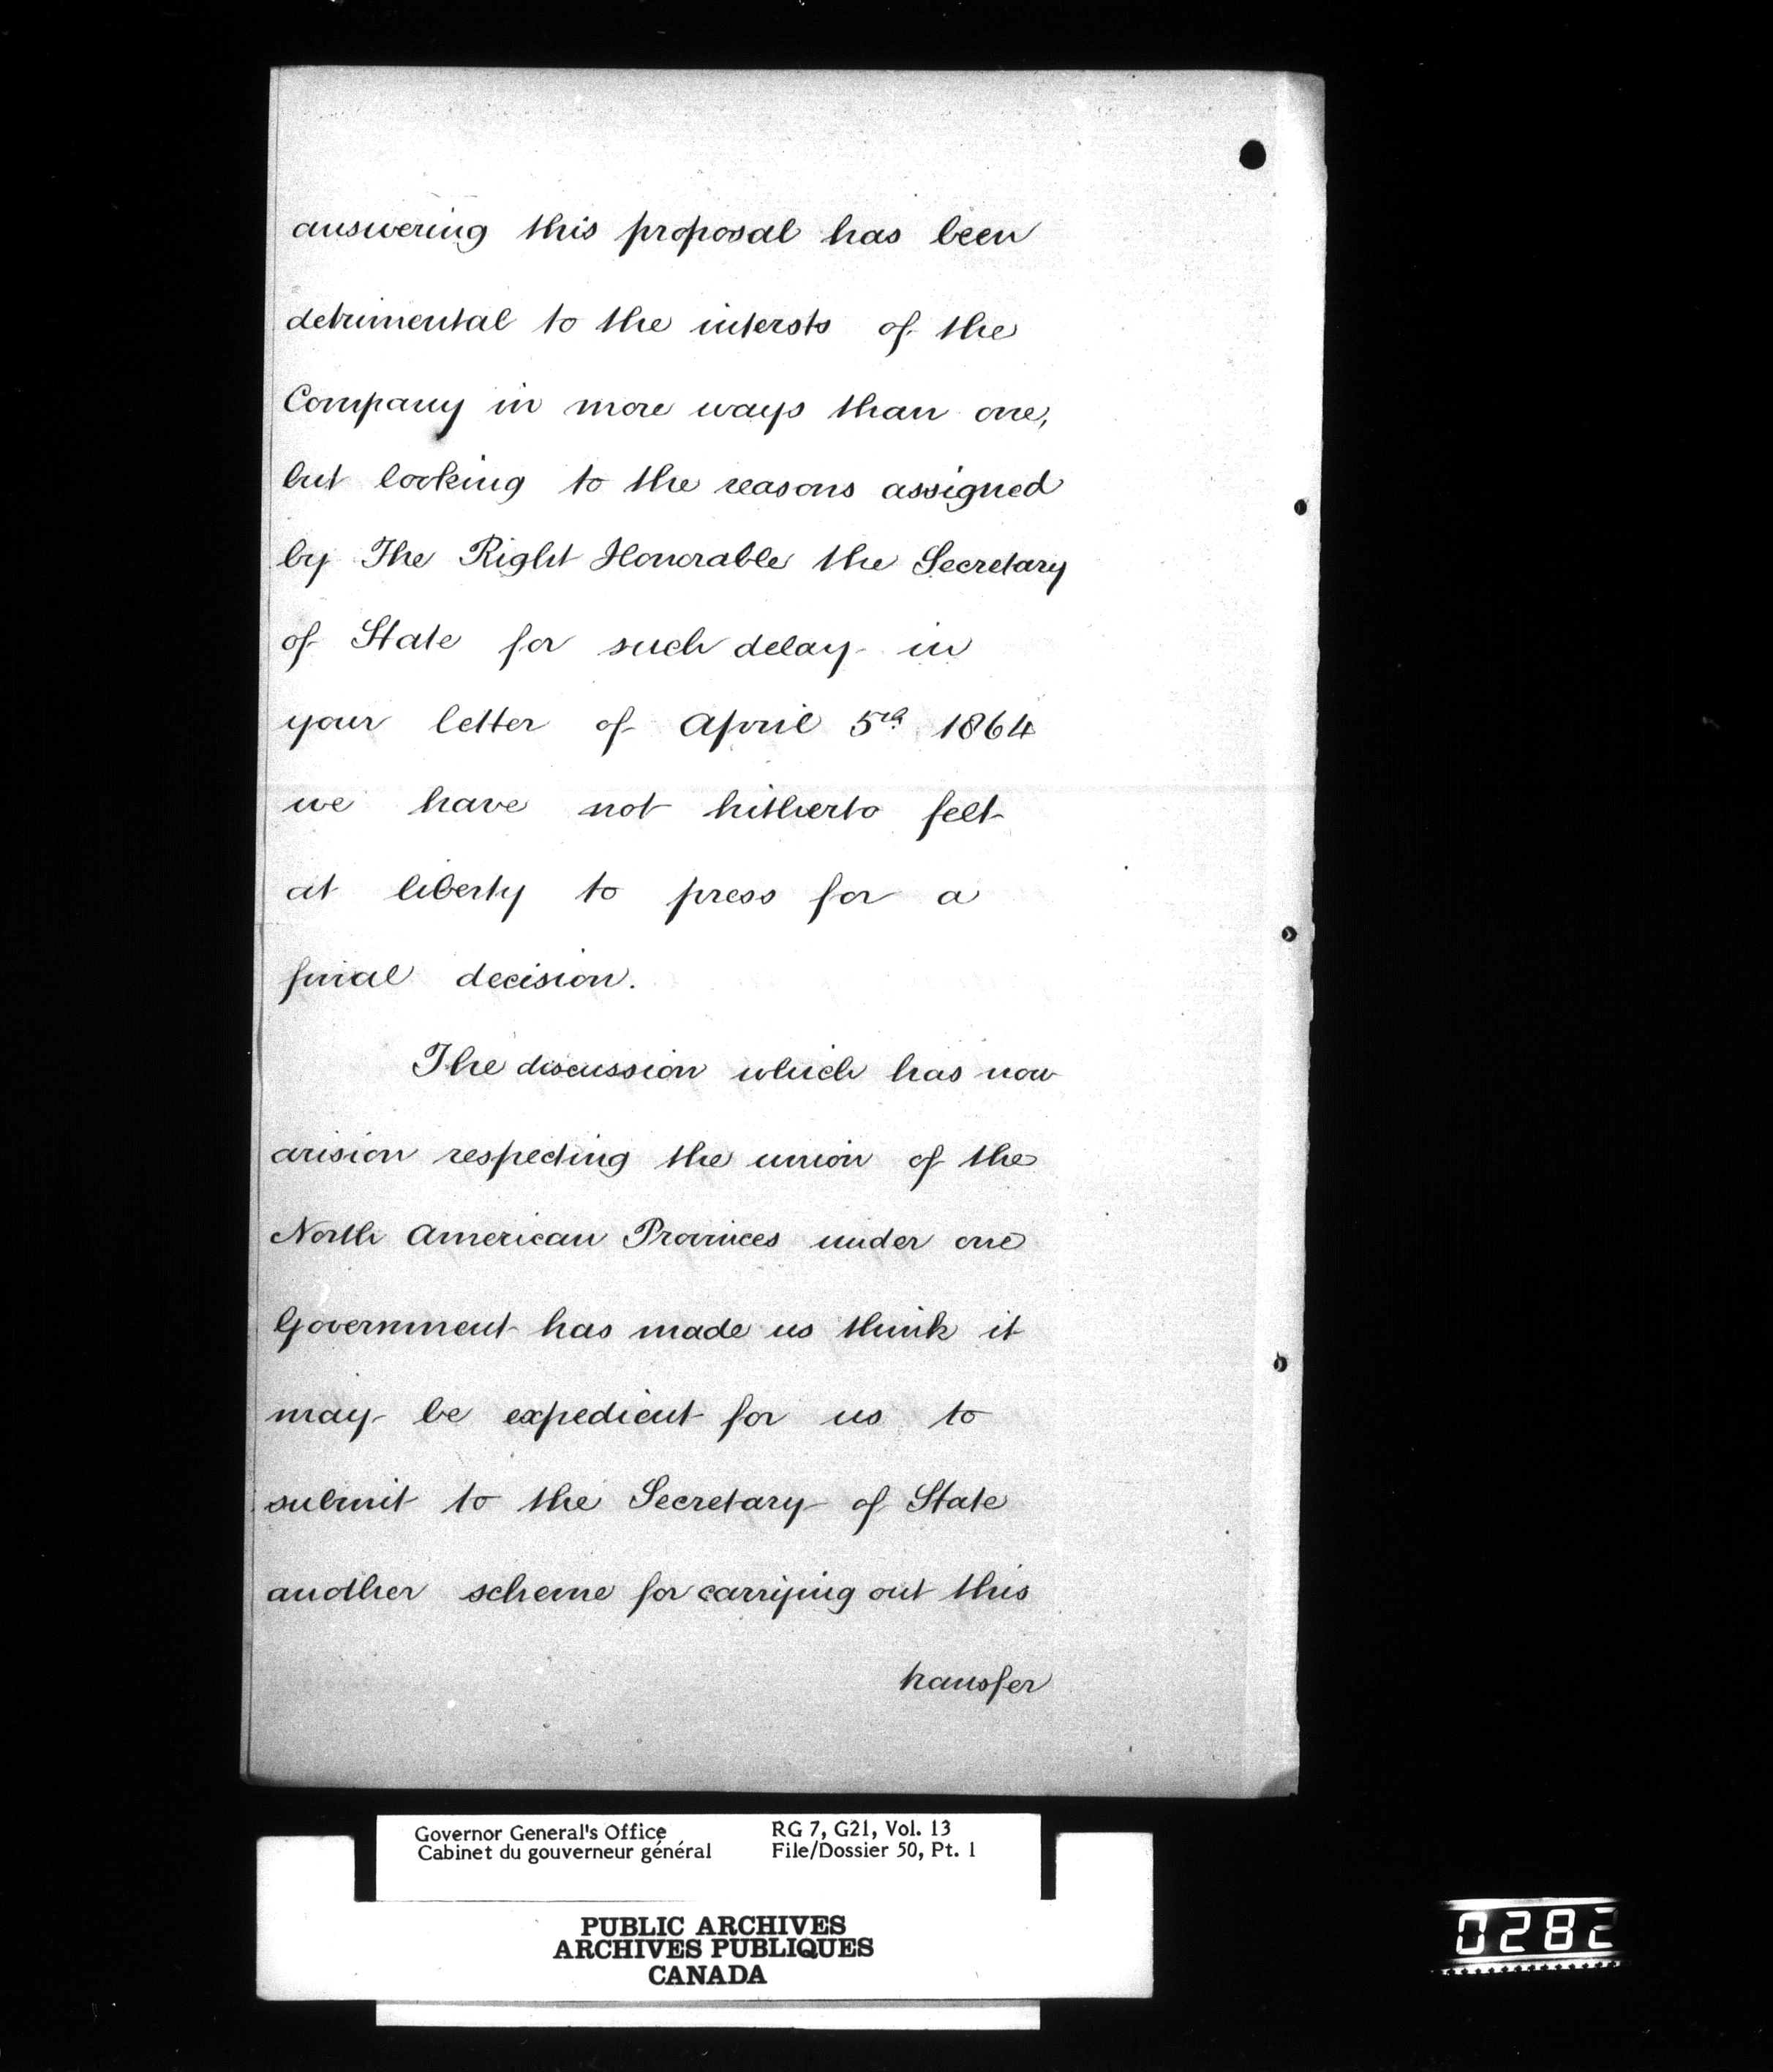 answering this proposal has been
detrimental to the intersts of the
Company in more ways than one,
but looking to the reasons assigned
by The Right Honorable the Secretary
of State for such delay in
your letter of April 5th 1864
we have not hitherto felt
at liberty to press for a
final decision.
The discussion which has now
arision respecting the union of the
North American Provinces under one
Government has made us think it
may be expedient for us to
submit to the Secretary of State
another scheme for carrying out this
transfer
Governor General's Office RG 7, G21, Vol. 13
Cabinet du gouverneur général File/Dossier 50, Pt. 1
PUBLIC ARCHIVES
ARCHIVES PUBLIQUES
CANADA
0282